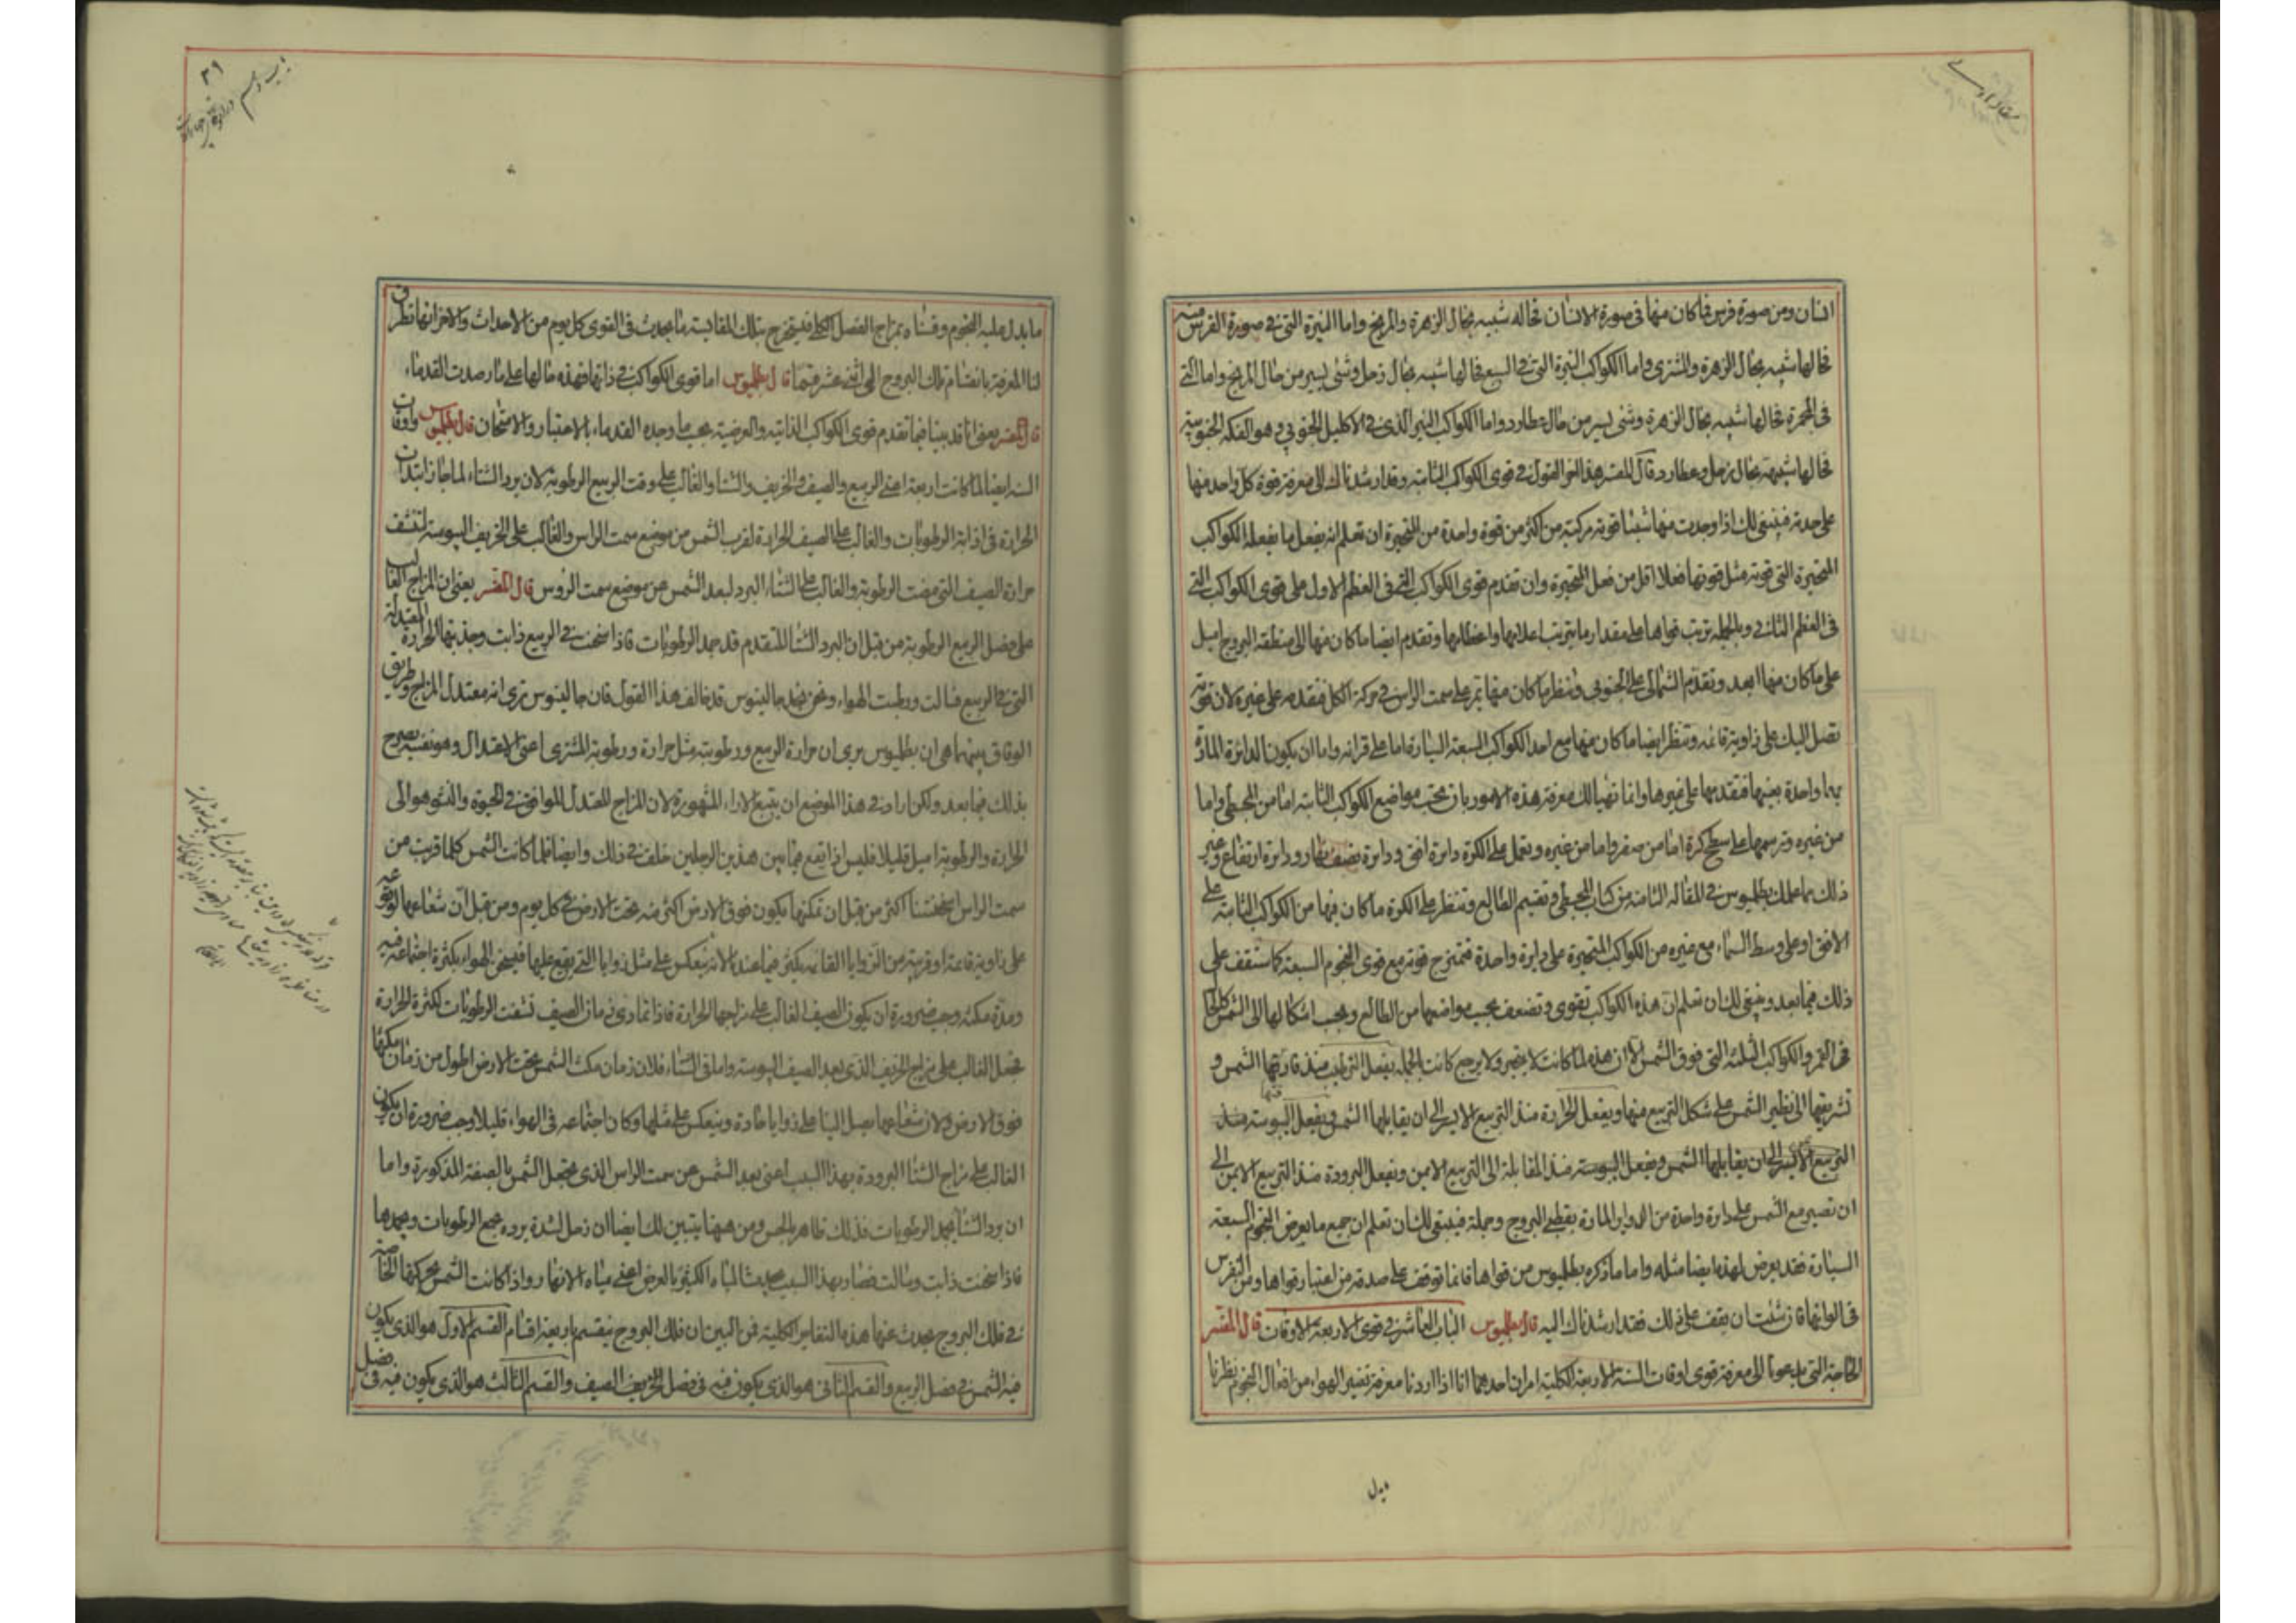 انسان ومن صورة فرس فما كان منها فى صورة الانسان فحاله شبيه بحال الزهرة والمريخ واما النيرة التى فى صورة الفرس منه
فحالها شبيه بحال الزهرة والمشترى واما الكواكب النيرة التى فى السبع فحالها شبيه بحال زحل وشئ يسير من حال المريخ واما التى
فى المجمرة فحالها شبيه بحال الزهرة وشئ يسير من حال عطارد واما الكواكب النير الذى فى الاكليل الجنوبى وهو الفكه الجنوبيه
فحالها شبيهة بحال زحل وعطارد قال المفسر هذا اخر القول فى قوى الكواكب الثابته وقد ارشدناك الى معرفة قوة كل واحد منها
على حدته فينبغى لك اذا وجدت منها شيئا قوته مركبة من اكثر من قوة واحدة من المتحيرة ان تعلم انه يفعل ما يفعله الكواكب
المتحيرة التى قوته مثل قوتها فعلا اقل من فعل المتحيرة وان تقدم قوى الكواكب التى فى العظم الاول على قوى الكواكب التى
فى العظم الثانى وبالجملة ترتب قواها على مقدار ما يترتب اعلامها واعظامها وتقدم ايضا ما كان منها الى منطقة البروج اميل
على ما كان منها ابعد وتقدم الشمالى على الجنوبى وتنظر ما كان منها تمر على سمت الراس فى حركة الكل فتقدمه على غيره لان قوته
تصل اليك على زاوية قائمه وتنظر ايضا ما كان منها مع احد الكواكب السبعة السيارة اما على قرانه واما ان يكون الدائرة المارة
بهما واحدة بعينها فتقدمها على غيرها وانما تهيا لك معرفة هذه الامور بان تحقق مواضع الكواكب الثابته اما من المجسطى واما
من غيره وترسمها على سطح كرة اما من صفر واما من غيره وتعمل على الكرة دايرة افق ودايرة نصف نهار ودايرة ارتفاع وغير
ذلك بما علمك بطلميوس فى المقاله الثامنه من كتاب المجسطى وتقيم الطالع وتنظر على الكرة ما كان فيها من الكواكب الثابته على
الافق او على وسط السماء مع غيره من الكواكب المتحيرة على دايرة واحدة فتمتزج قوته مع قوى النجوم السبعة كما ستقف على
ذلك فيما بعد وينبغى لك ان تعلم ان هذه الكواكب تقوى وتضعف بحسب مواضعها من الطالع وبحسب اشكالها الى الشمس كالحال
فى القمر والكواكب الثلثه التى فوق الشمس الا ان هذه لما كانت لا تتحير ولا يرجع كانت بالجملة يفعل الترطيب منذ فارقتها الشمس و
تشريقها الى نظير الشمس على شكل التربيع منها ويفعل الحرارة منذ التربيع الايسر الى ان يقابلها الشمس ويفعل اليبوسة منذ
التربيع الايسر الى ان يقابلها الشمس ويفعل اليبوسة منذ المقابلة الى التربيع الايمن ويفعل البرودة منذ التربيع الايمن الى
ان تصير مع الشمس على دايرة واحدة من الدواير المارة بقطبى البروج وجملة فينبغى لك ان تعلم ان جميع ما يعرض للنجوم السبعة
السيارة فقد يعرض لهذه ايضا مثله واما ما ذكره بطلميوس من قواها فانما توقف على صدقه من اعتبار قواها ومن التفرس
فى الوانها فان شئت ان يقف على ذلك فقد ارشدناك اليه قال بطلميوس الباب العاشر فى قوى الاربعة الاوقات قال المفسر
الحاجة التى يدعونا الى معرفة قوى اوقات السنة الاربعة الكلية امران احدهما انا اذا اردنا معرفة تغير الهواء من افعال النجوم نظرنا
ما يدل عليه النجوم وقسناه بمزاج الفصل الكلى فيستخرج بتلك المقايسة ما يحدث فى القوى كل يوم من الاحداث والاخر انها تطرق
لنا المعرفة بانقسام فلك البروج الى اثنى عشر قسما قال بطلميوس اما قوى الكواكب فى ذاتها فهذه حالها على ما رصدت القدماء
قال المفسر يعنى انا قد بينا فيما تقدم قوى الكواكب الذاتية والعرضية بحسب ما وجده القدماء بالاعتبار والامتحان قال بطلميوس واوقات
السنه ايضا لما كانت اربعة اعنى الربيع والصيف والخريف والشتاء والغالب على وقت الربيع الرطوبة لان برد الشتاء لما جاز ابتدأت
الحرارة فى اذابة الرطوبات والغالب على الصيف الحرارة لقرب الشمس من موضع سمت الراس والغالب على الخريف اليبوسة لتنشف
حرارة الصيف التى مضت الرطوبة والغالب على الشتاء البرد لبعد الشمس عن موضع سمت الروس قال المفسر يعنى ان المزاج الغالب
على فصل الربيع الرطوبة من قبل ان البرد الشتا المتقدم قد جمد الرطوبات فاذا سخنت فى الربيع ذابت وجذبتها الحرارة المعتدلة
التى فى الربيع فسالت ورطبت الهواء ونحن نجد جالينوس قد خالف هذا القول فان جالينوس ترى انه معتدل المزاج وطريق
الوفاق بينهما هى ان بطلميوس يرى ان حرارة الربيع ورطوبته مثل حرارة ورطوبة المشترى اعنى الاعتدال وهو نفسه يصرح
بذلك فيما بعد ولكن اراد فى هذا الموضع ان يتبع الاراء المشهورة لان المزاج المعتدل الموافق فى الحيوة والنشو هو الى
الحرارة والرطوبة اميل قليلا فليس اذا يقع فيما بين هذين الرجلين خلف فى ذلك وايضا فلما كانت الشمس كلما قربت من
سمت الراس اسخنتنا اكثر من قبل ان مكثها يكون فوق الارض اكثر منه تحت الارض فى كل يوم ومن قبل ان شعاعها لوقوعه
على زاوية قائمة او قريبة من الزوايا القائمه يكثر فيما عندنا لانه ينعكس على مثل زوايا التى يقع عليها فيسخن الهواء بكثرة اجتماعه فيه
ومدة مكثه وجب ضرورة ان يكون الصيف الغالب على مزاجها الحرارة فاذا تمادى زمان الصيف نشفت الرطوبات لكثرة الحرارة
فجعل الغالب على مزاج الخريف الذى بعد الصيف اليبوسة واما فى الشتاء فلان زمان مكث الشمس تحت الارض اطول من زمان مكثها
فوق الارض ولان شعاعها يصل الينا على زوايا حادة وينعكس على مثلها وكان اجتماعه فى الهواء قليلا وجب ضرورة ان يكون
الغالب على مزاج الشتا البرودة بهذا السبب اعنى بعد الشمس عن سمت الراس الذى يجعل الشمس بالصفة المذكورة واما
ان برد الشتا يجمد الرطوبات فذلك ظاهر بالحس ومن ههنا يتبين لك ايضا ان زحل لشدة برده يجمع الرطوبات ويجمدها
فاذا سخنت ذابت وسالت فصار بهذا السبب يحدث المياه الكثيرة بالعرض اعنى مياه الانهار واذا كانت الشمس بحركتها الخاصة
فى فلك البروج يحدث عنها هذه التغايير الكلية فمن البين ان فلك البروج ينقسم باربعة اقسام القسم الاول هو الذى يكون
فيه الشمس فى فصل الربيع والقسم الثانى هو الذى يكون فيه فى فصل الخريف الصيف والقسم الثالث هو الذى يكون فيه فى فصل
٢٩